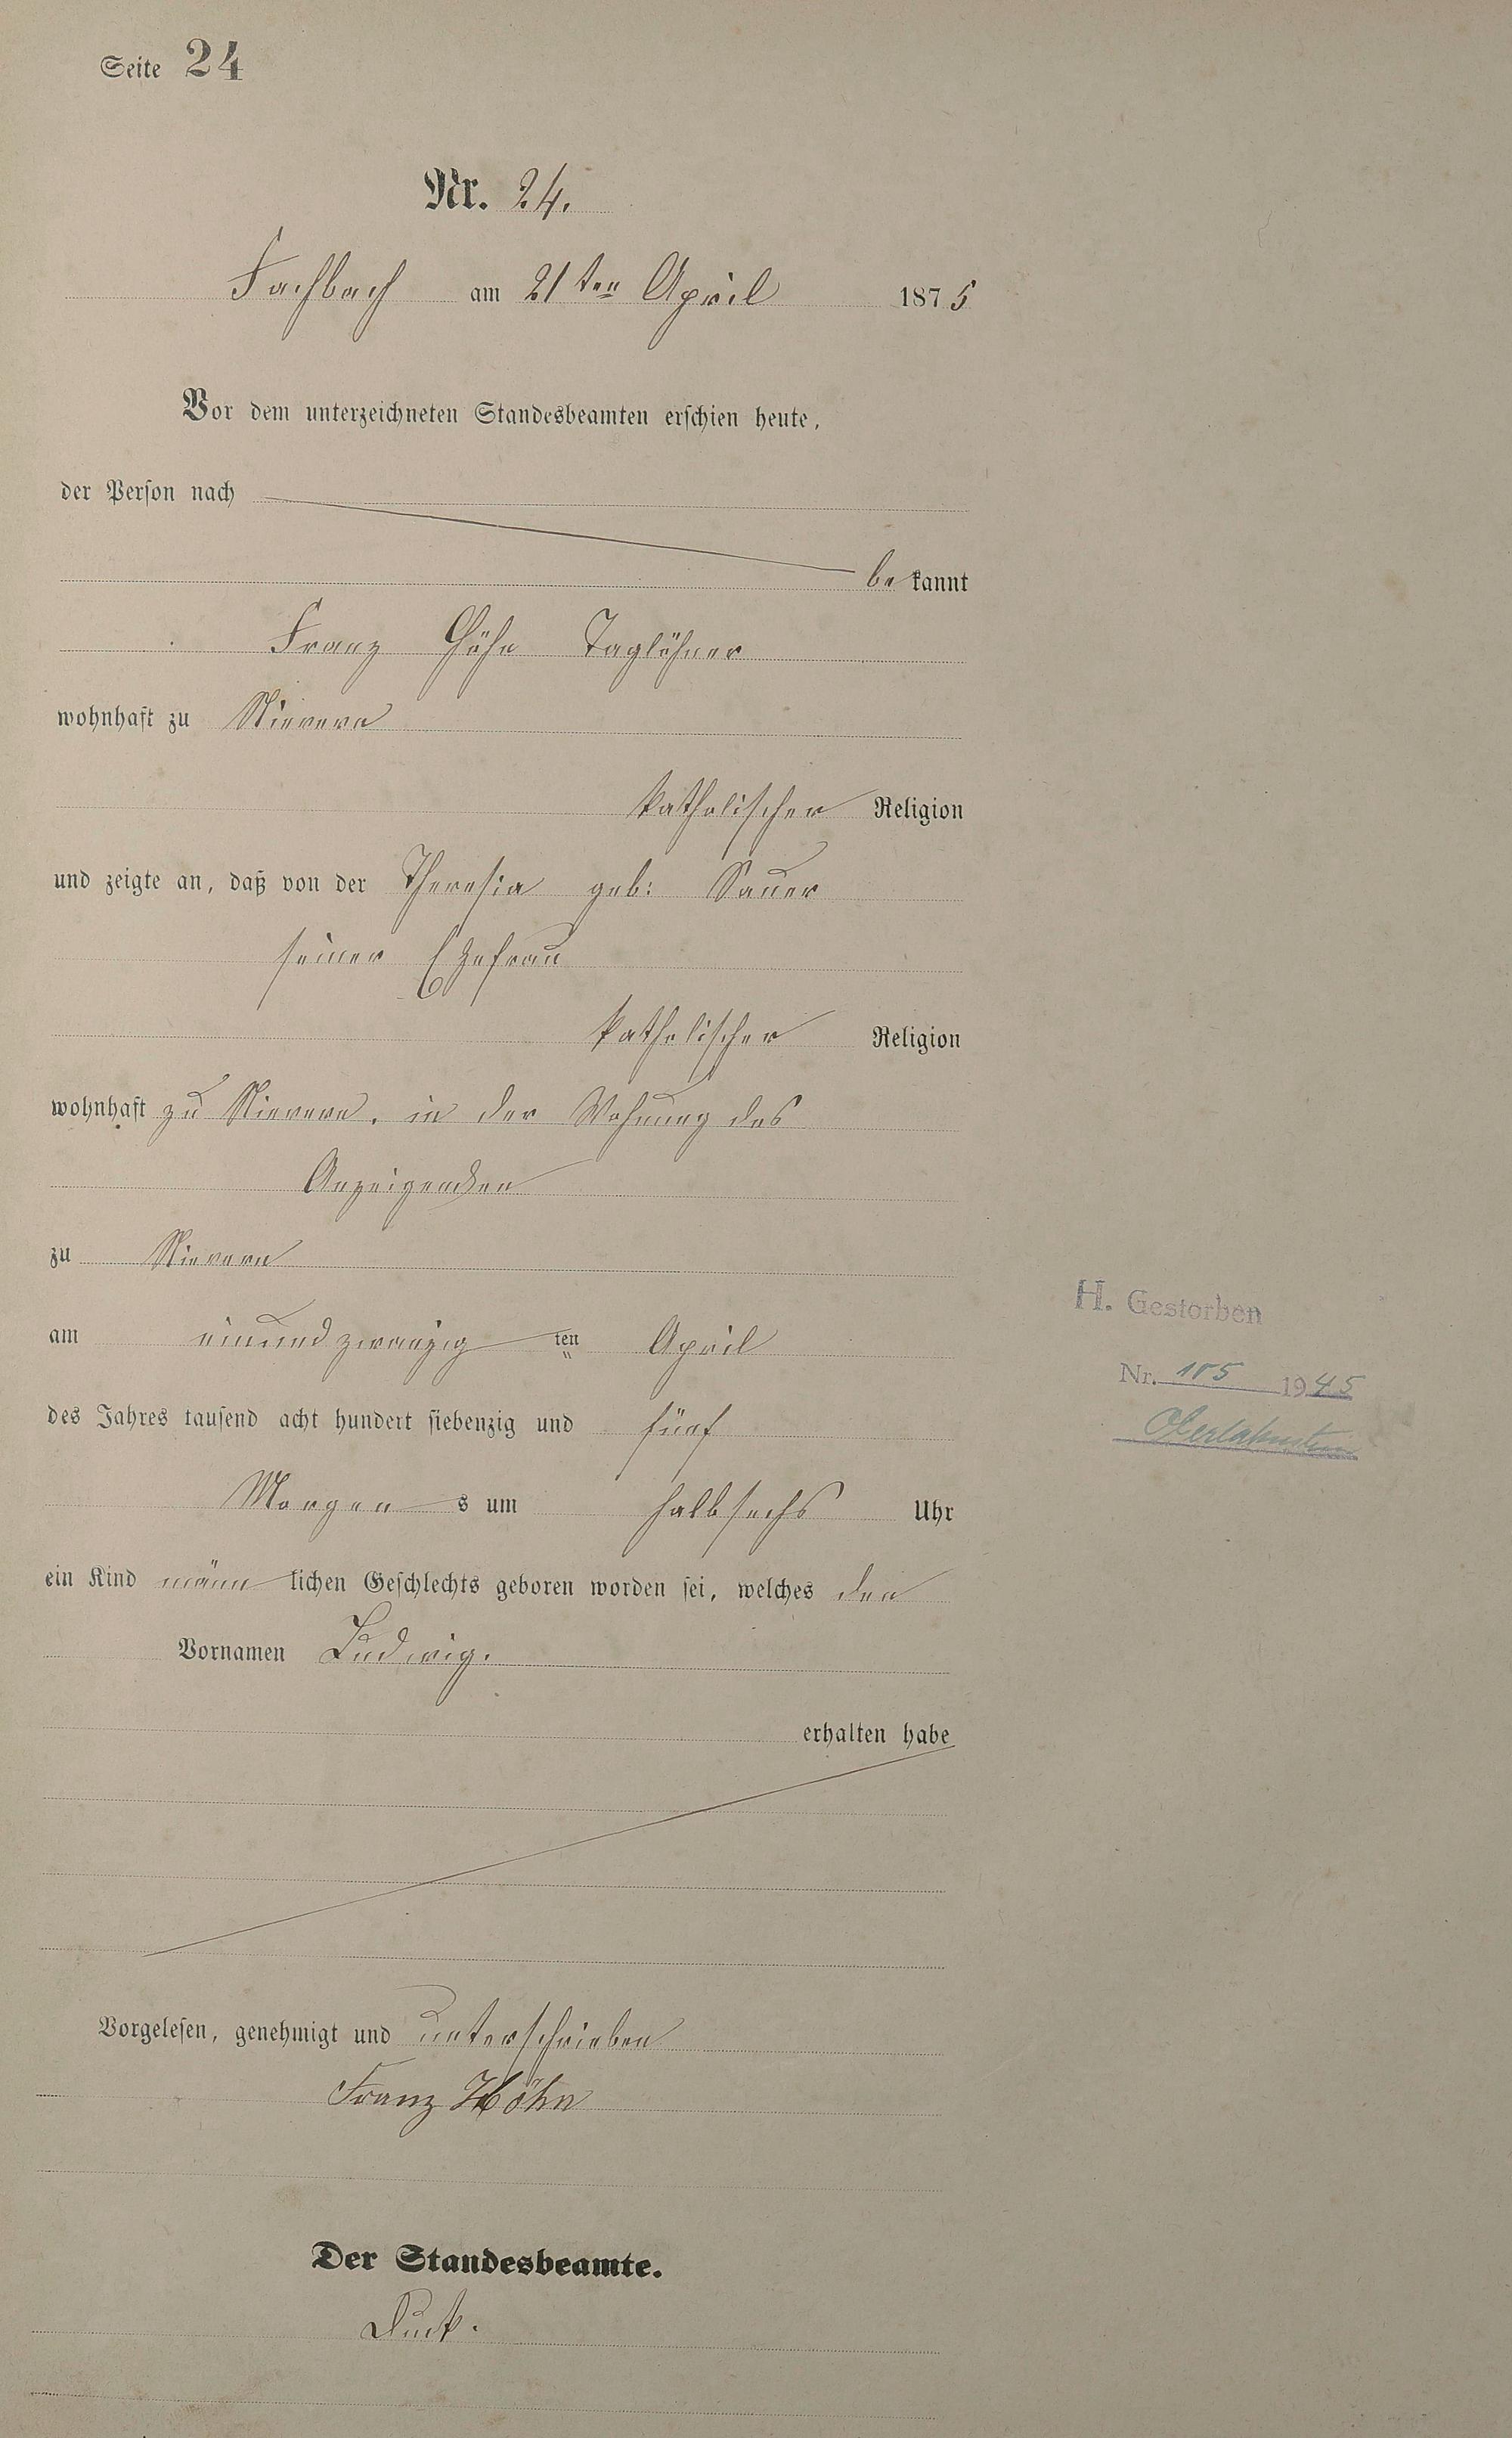 Seite 24
Nr. 24.
Fachbach am 21ten April 1875
Vor dem unterzeichneten Standesbeamten erschien heute,
der Person nach
bekannt
Franz Höhn Taglöhner
wohnhaft zu Nievern
katholischer Religion
und zeigte an, daß von der Theresia geb: Sauer
seiner Ehefrau
katholischer Religion
wohnhaft zu Nievern, in der Wohnung des
Anzeigenden
zu Nievern
am einundzwanzig ten April
des Jahres tausend acht hundert siebenzig und fünf
Morgens um halb sechs Uhr
ein Kind männlichen Geschlechts geboren worden sei, welches den
Vornamen Ludwig.
erhalten habe
Vorgelesen, genehmigt und unterschrieben
Franz Höhn
Der Standesbeamte.
H. Gestorben
Nr. 105 1945
Oberlahnstein